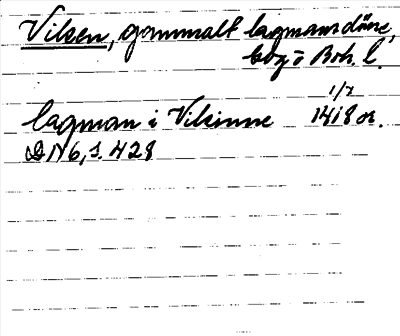 Vilsen, gammalt lagmansdöme,
bog i Boh. l.
1/7
lagman i Vilsinne 1418 or.
DN 6, s. 428